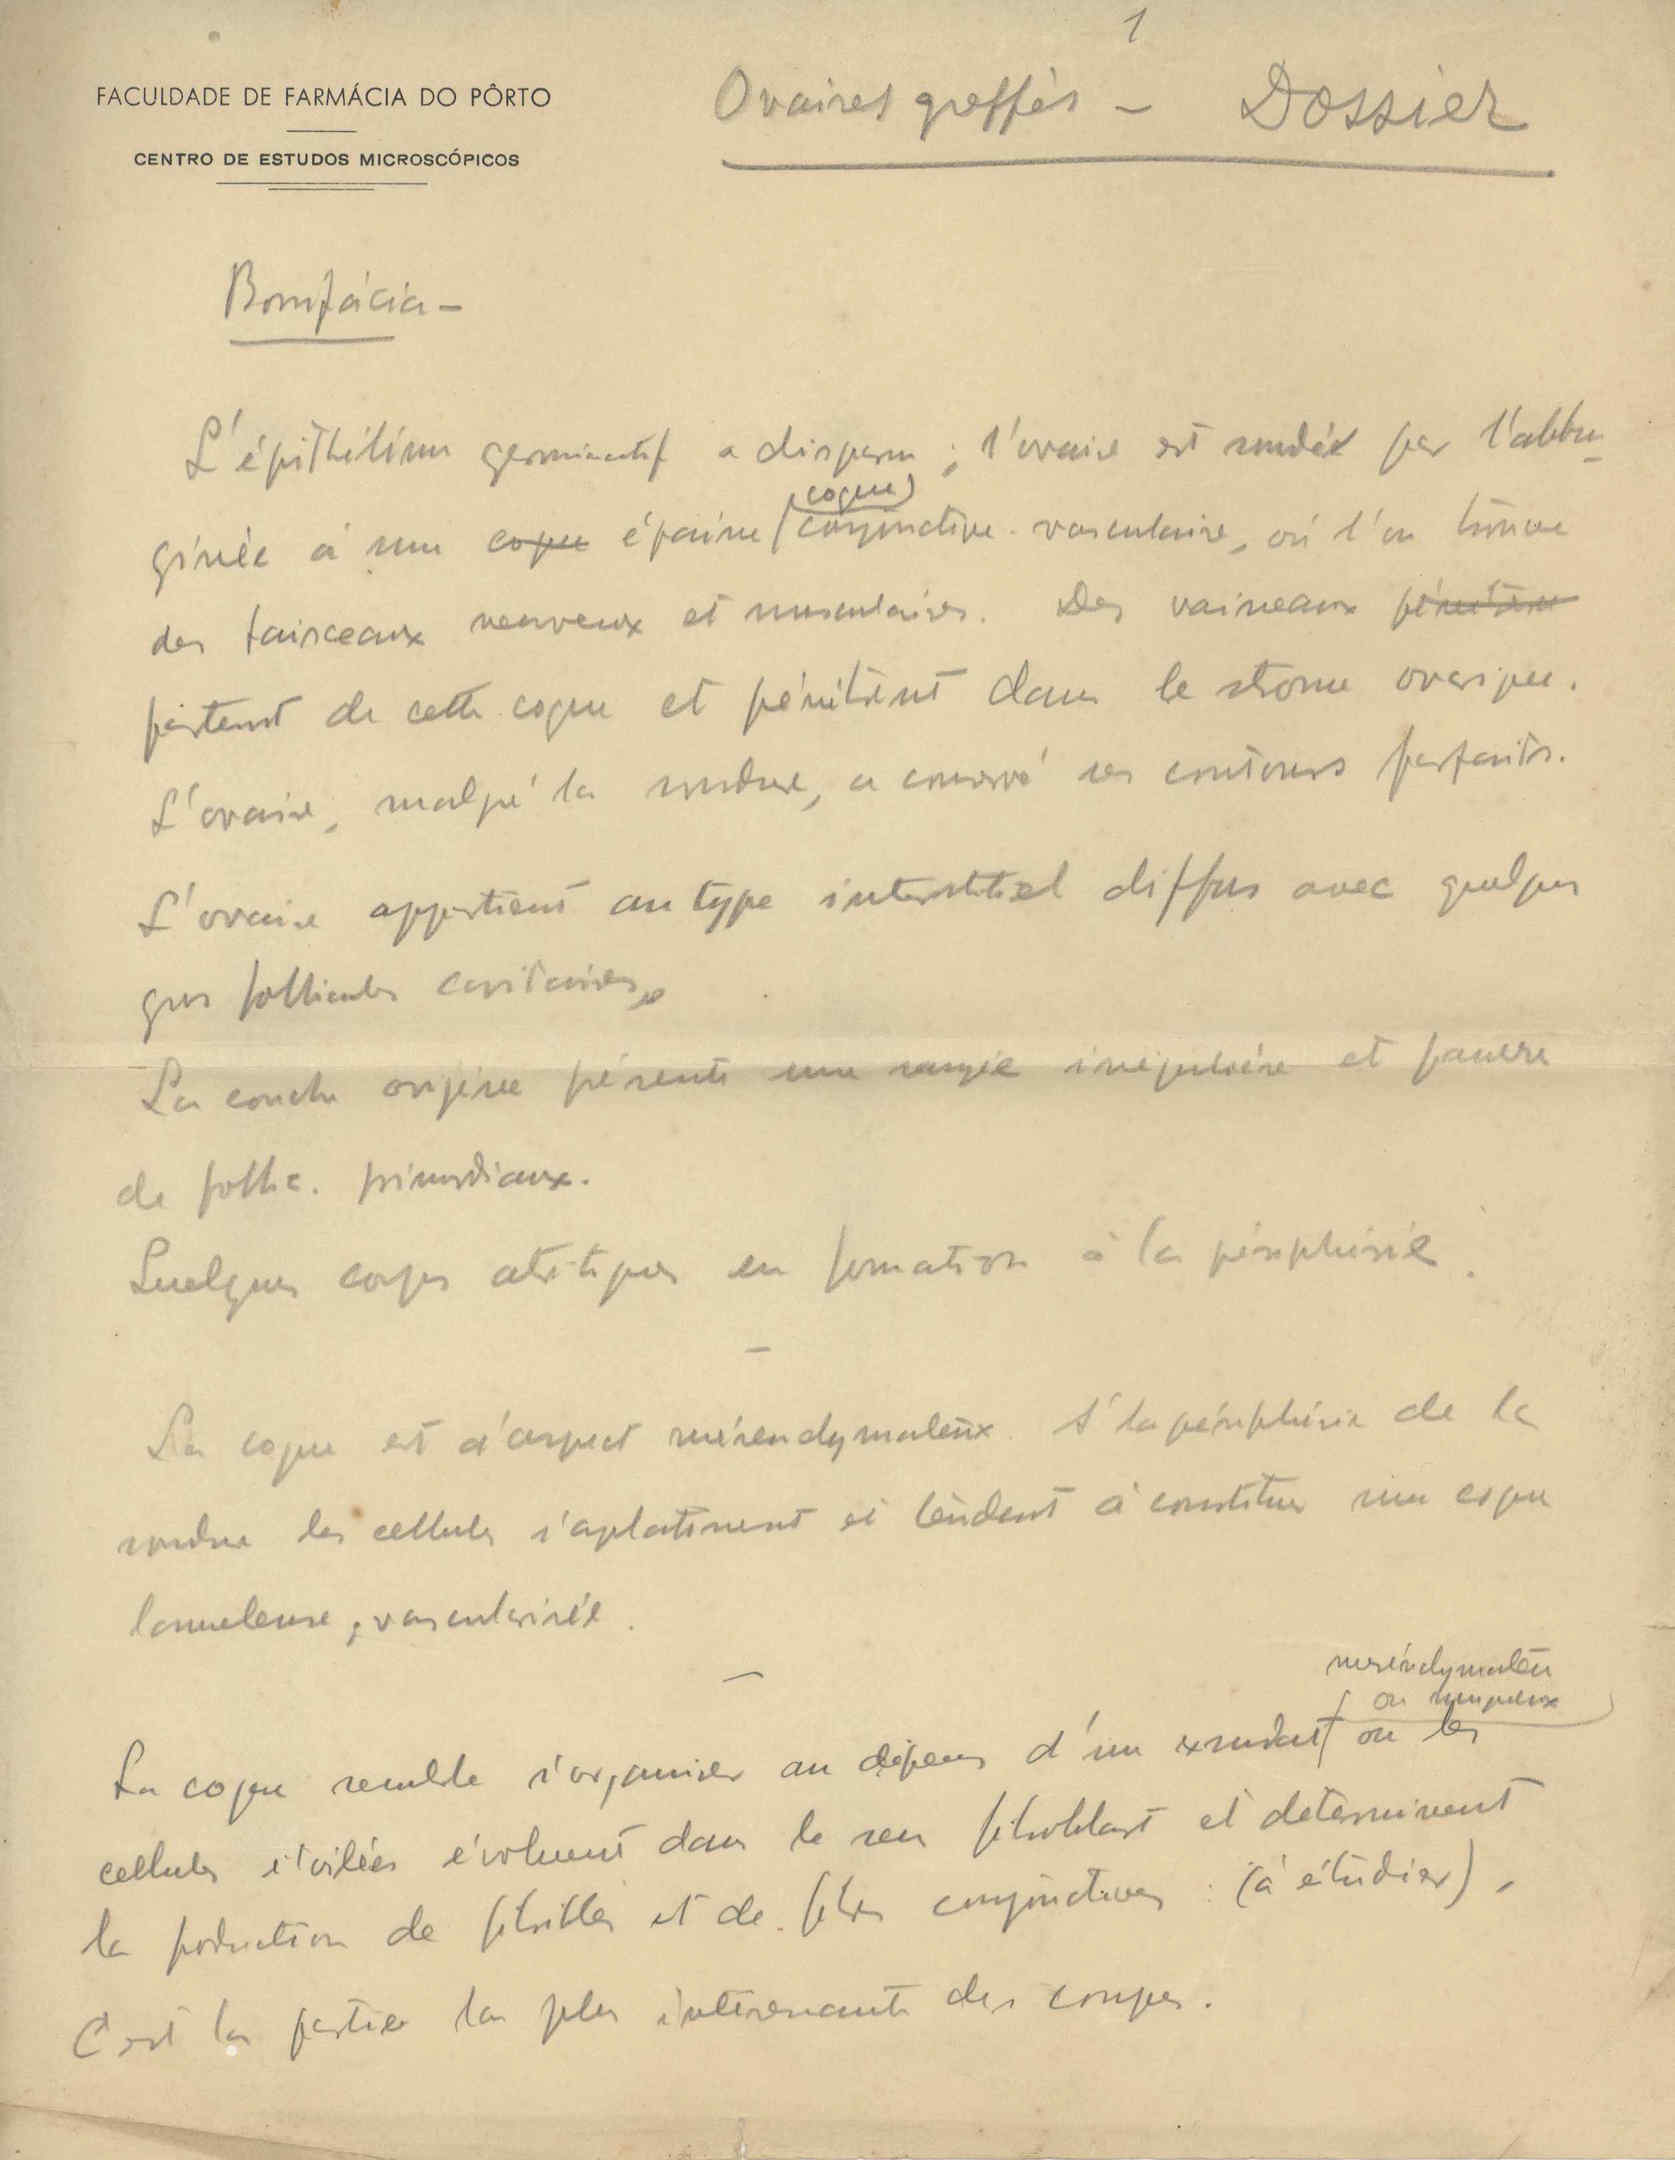 1
FACULDADE DE FARMÁCIA DO PÔRTO
CENTRO DE ESTUDOS MICROSCÓPICOS
Ovaires greffés – Dossier
Bonifácia –
L'épithélium germinatif a disparu ; l'ovaire est soudée par l'albu-
ginée à une coque épaisse (coque) conjonctive-vasculaire, où l'on trouve
des faisceaux nerveux et musculaires. Des vaisseaux pénètrent
partent de cette coque et pénètrent dans le stroma ovarique.
L'ovaire, malgré la soudure, a conservé ses contours parfaits.
L'ovaire appartient au type interstitiel diffus avec quelques
gros follicules cavitaires.
La couche ovigène présente une rangée irrégulière et pauvre
de follic. primordiaux.
Quelques corps atrétiques en formation à la périphérie.
–
La coque est d'aspect mésenchymateux. A la périphérie de la
soudure les cellules s'aplatissent et tendent à constituer une coque
lameleuse, vascularisée.
–
mésenchymateux
ou muqueux
La coque semble s'organiser au dépens d'un exsudat ou les
cellules étoilées évoluent dans le sens fibroblast et determinent
la production de fibrilles et de fibres conjonctives : (à étudier).
C'est la partie la plus intéressante des coupes.